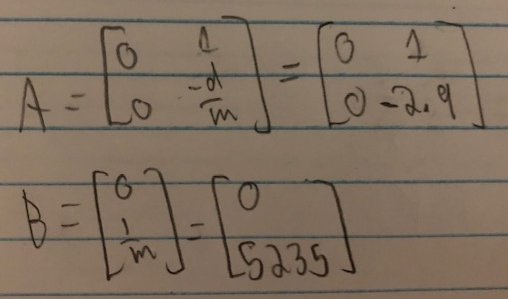 A = [0 1; 0 -d/m] = [0 1; 0 -2.9]
B = [0; 1/m] = [0; 5235]